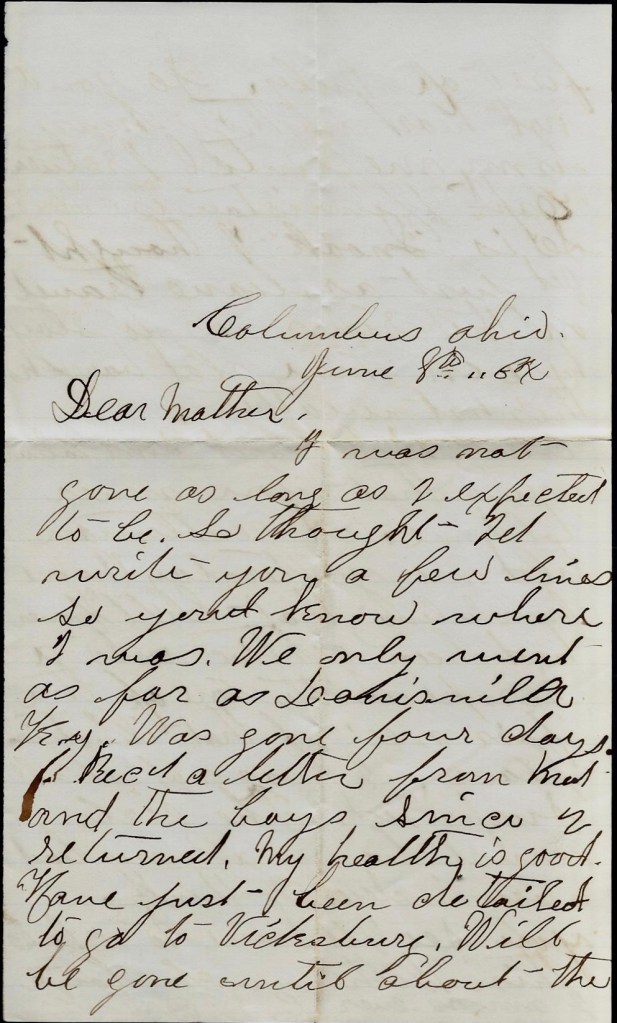 Columbus Ohio.
June 8th "64
Dear Mother,
I was not
gone as long as I expected
to be. So thought I'd
write you a few lines
so you'd know where
I was. We only went
as far as Louisville
Ky. Was gone four days.
Rec'd a letter from Mat
and the boys since I
returned. My health is good.
Have just been detailed
to go to Vicksburg. Will
be gone until about the